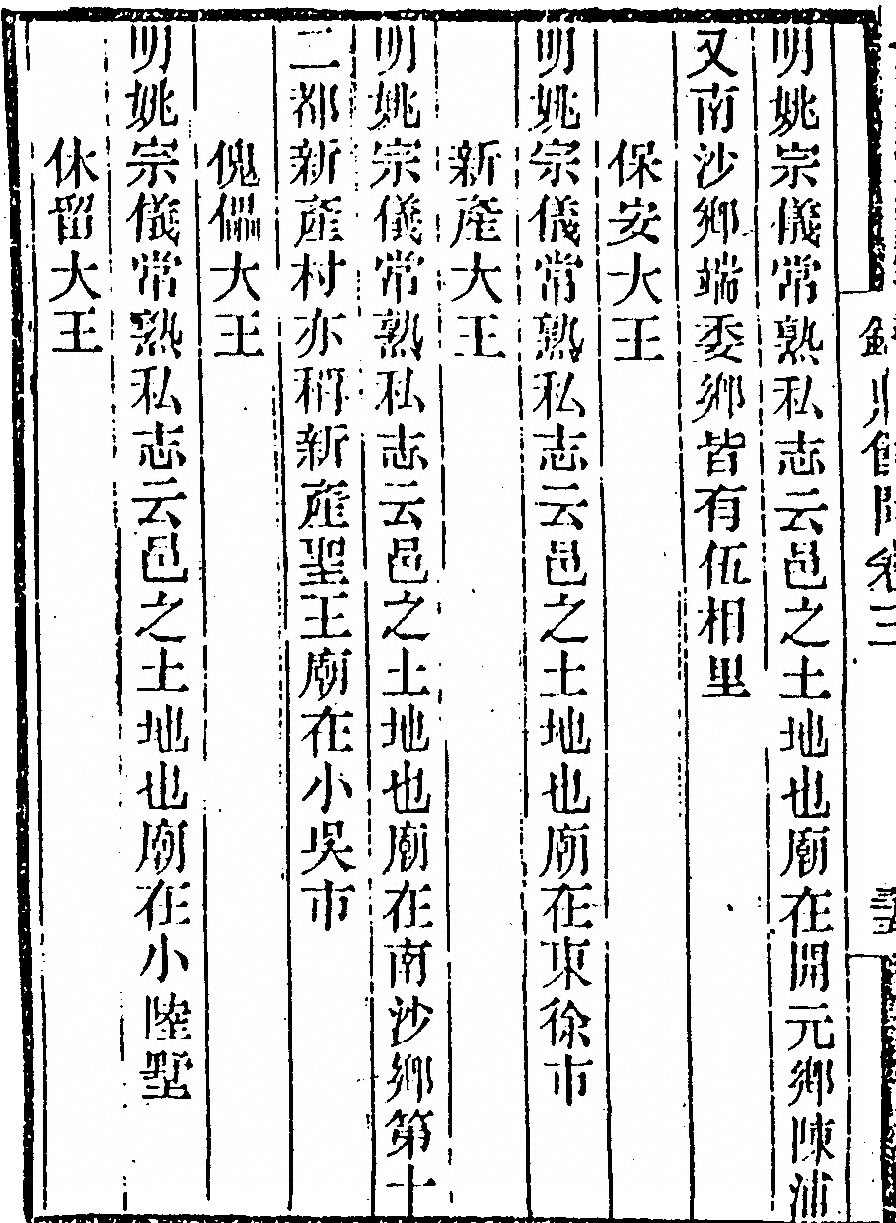 明姚宗儀常熟私志云邑之土地也廟在開元鄉陳浦
又南沙鄉端委鄉皆有伍相里
保安大王
明姚宗儀常熟私志云邑之土地也廟在東徐市
新產大王
明姚宗儀常熟私志云邑之土地也廟在南沙鄉第十
二都新產村亦稱新產聖王廟在小吳市
傀儡大王
明姚宗儀常熟私志云邑之土地也廟在小陸墅
休留大王